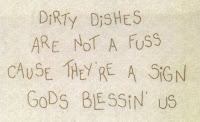 DiRTY DiSHES
ARE NOT A FUSS
CAUSE THEY'RE A SiGN
GODS BLESSiN' US